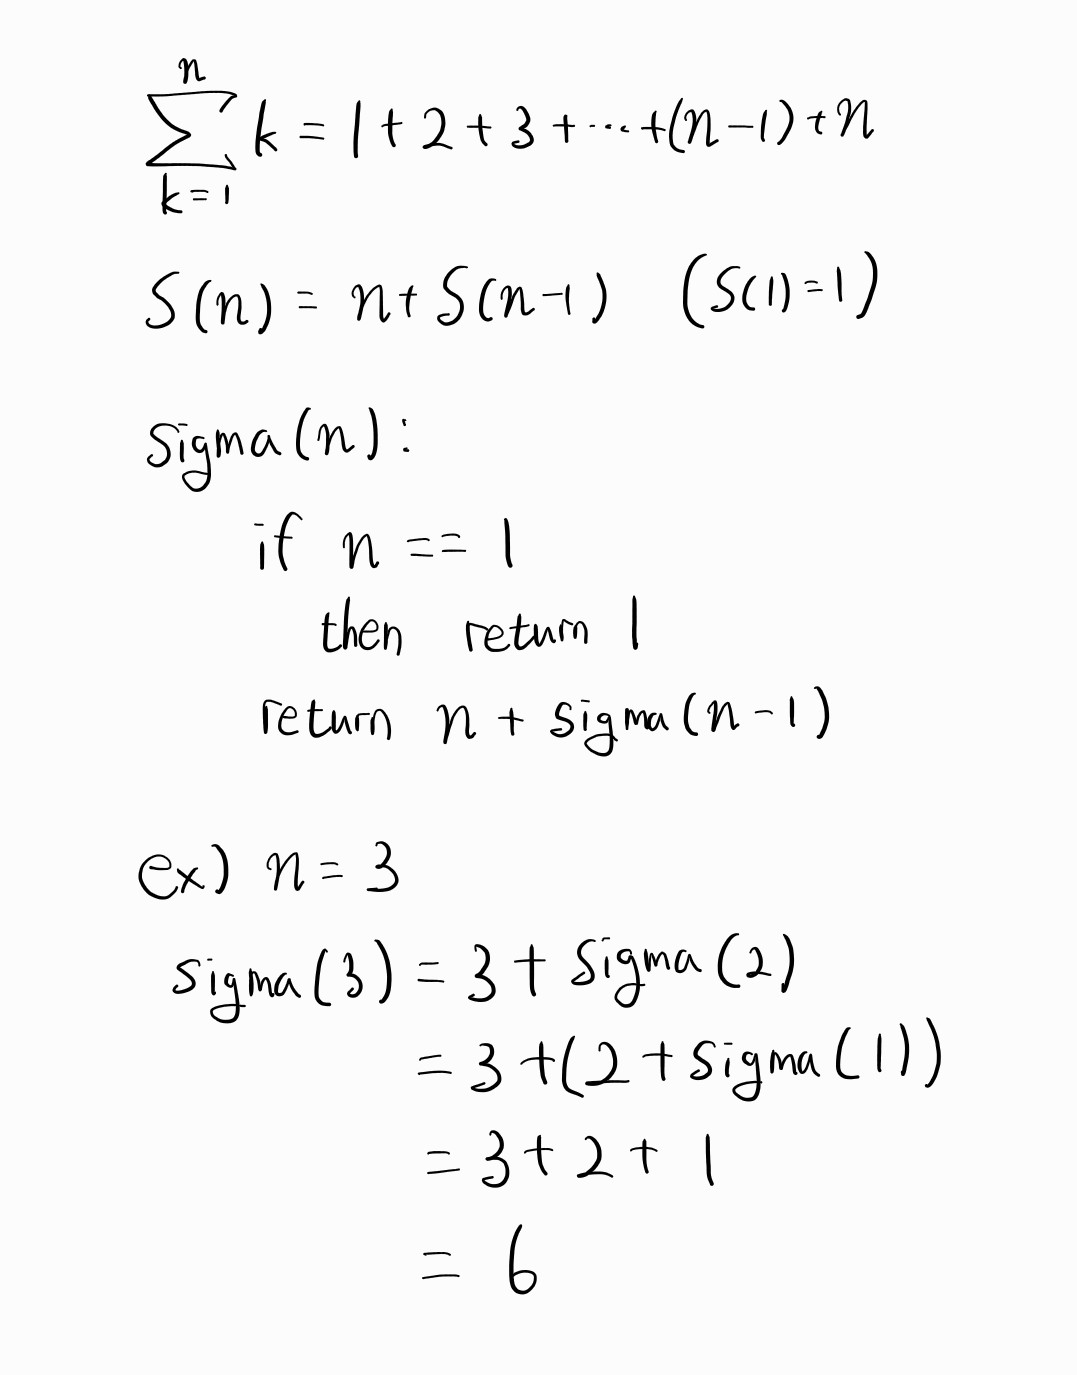 n
∑ k = 1 + 2 + 3 + ⋯ + (n-1) + n
k=1
S(n) = n + S(n-1) (S(1)=1)
sigma(n):
if n == 1
then return 1
return n + sigma(n-1)
ex) n = 3
sigma(3) = 3 + sigma(2)
= 3 + (2 + sigma(1))
= 3 + 2 + 1
= 6